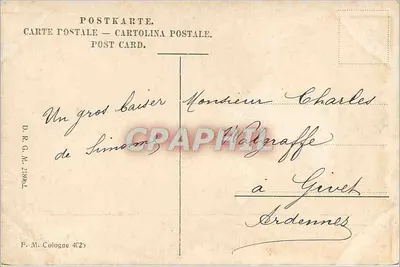 POSTKARTE.
CARTE POSTALE — CARTOLINA POSTALE.
POST CARD.
Un gros baiser
de Simone
Monsieur Charles
à Givet
Ardennes
CPAPHIL
D. R. G. M.
P. M. Cologne